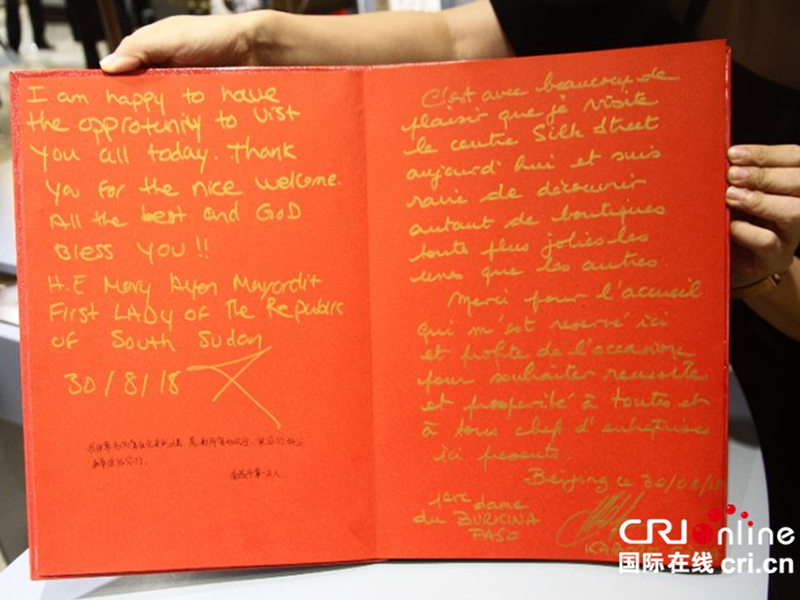 I am happy to have
the opprotunity to vist
you all today. Thank
you for the nice welcome.
All the best and GOD
Bless YOU!!
H.E Mary Ayen Mayardit
First LADY of The Republic
of South Sudan
30/8/18
C'est avec beaucoup de
plaisir que je visite
le centre Silk Street
aujourd'hui et suis
ravie de découvrir
autant de boutiques
toutes plus jolies les
unes que les autres
Merci pour l'accueil
qui m'est réservé ici
et profite de l'occasion
pour souhaiter réussite
et prospérité à toutes et
à tous chef d'entreprise
ici présents
Beijing ce 30/08/18
1ere dame
du BURKINA
FASO
CRI online
国际在线 cri.cn